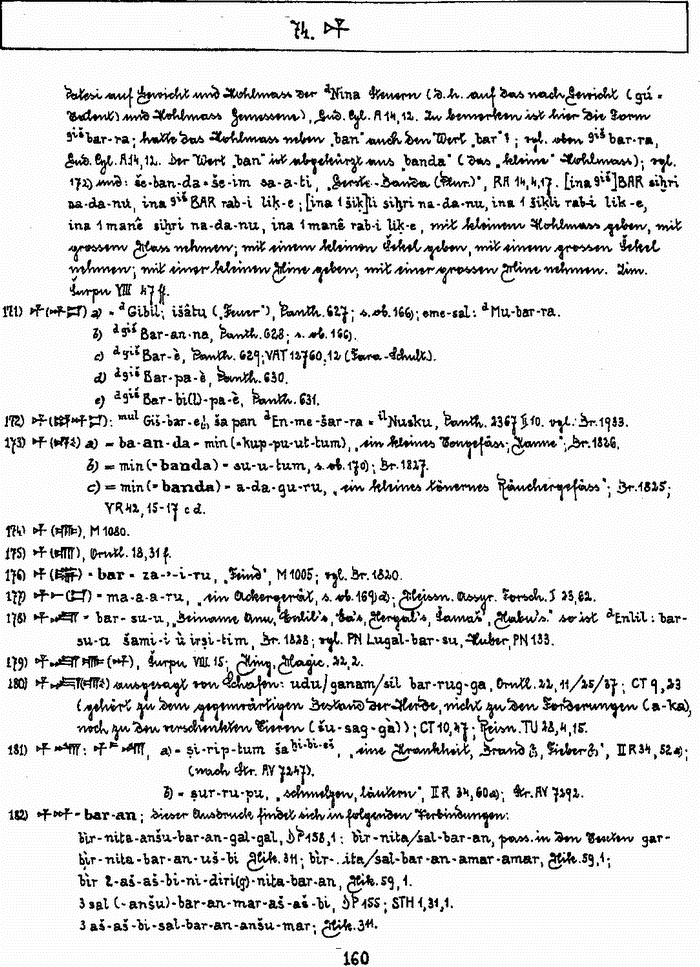 74. 𒁇
patesi auf Gewicht und Hohlmass der ᵈNina Steuern (d.h. auf das nach Gewicht (gú =
Talent) und Hohlmass Gemessene), Gud. Cyl. A 14, 12. Zu bemerken ist hier die Form
ᵍⁱˢ̌bar-ra; hatte das Hohlmass neben „ban" auch den Wert „bar"?; vgl. oben ᵍⁱˢ̌bar-ra,
Gud. Cyl. A 14, 12. Der Wert „ban" ist abgekürzt aus „banda" (das „kleine" Hohlmass); vgl.
172) und: še-ban-da = še-im sa-a-ti, „Gerste-Banda (Plur.)", RA 14, 4, 17. [ina ᵍⁱˢ̌]BAR siḫri
na-da-nu, ina ᵍⁱˢ̌BAR rab-i liḳ-e; [ina 1 šiḳ]li siḫri na-da-nu, ina 1 šiḳli rab-i liḳ-e,
ina 1 manê siḫri na-da-nu, ina 1 manê rab-i liḳ-e, mit kleinem Hohlmass geben, mit
grossem Mass nehmen; mit einem kleinen Šekel geben, mit einem grossen Šekel
nehmen; mit einer kleinen Mine geben, mit einer grossen Mine nehmen. Zim.
Šurpu VIII 47 ff.
171) a) = ᵈGibil; išâtu („Feuer"), Panth. 627; s. ob. 166); eme-sal: ᵈMu-bar-ra.
b) ᵈᵍⁱˢ̌Bar-an-na, Panth. 628; s. ob. 166).
c) ᵈᵍⁱˢ̌Bar-è, Panth. 629; VAT 12760, 12 (Fara-Schult.).
d) ᵈᵍⁱˢ̌Bar-pa-è, Panth. 630.
e) ᵈᵍⁱˢ̌Bar-bi(l)-pa-è, Panth. 631.
172) ᵐᵘˡ Giš-bar-è, ša pan ᵈEn-me-šar-ra = ⁱˡNusku, Panth. 2367 II 10. vgl. Br. 1933.
173) a) = ba-an-da = min (= kup-pu-ut-tum), „ein kleines Tongefäss, Kanne"; Br. 1826.
b) = min (= banda) = su-u-tum, s. ob. 170); Br. 1827.
c) = min (= banda) = a-da-gu-ru, „ein kleines tönernes Räuchergefäss"; Br. 1825;
V R 42, 15-17 c d.
174) M 1080.
175) Orntl. 18, 31 f.
176) = bar = za-'-i-ru, „Feind", M 1005; vgl. Br. 1820.
177) = ma-a-a-ru, „ein Ackergerät, s. ob. 169) a); Meissn. Assyr. Forsch. I 23, 62.
178) = bar-su-u, „Beiname Anu, Enlil's, Ea's, Nergal's, Šamaš', Nabu's." so ist ᵈEnlil: bar-
su-u šami-i ù irṣi-tim, Br. 1828; vgl. PN Lugal-bar-su, Huber, PN 133.
179) Šurpu VIII 15; King, Magic. 22, 2.
180) ausgesagt von Schafen: udu/ganam/sil bar-rug-ga, Orntl. 22, 11/25/37; CT 9, 23
(gehört zu dem gegenwärtigen Bestand der Herde, nicht zu den Forderungen (a-ka),
noch zu den verschenkten Tieren (šu-sag-gà)); CT 10, 47; Reisn. TU 28, 4, 15.
181) a) = ṣi-rip-tum ša ᵇⁱ⁻ᵇⁱ⁻ᵉˢ̌, „eine Krankheit, Brand?, Fieber?", II R 34, 52 a);
(nach Str. AV 7247).
b) = ṣur-ru-pu, „schmelzen, läutern", II R 34, 60 a); Str. AV 7292.
182) = bar-an; dieser Ausdruck findet sich in folgenden Verbindungen:
bìr-nita-anšu-bar-an-gal-gal, DP 158, 1: bìr-nita/sal-bar-an, pass. in den Texten gar-
bìr-nita-bar-an-uš-bi Nik. 311; bìr-..ita/sal-bar-an-amar-amar, Nik. 59, 1;
bìr 2-aš-aš-bi-ni-diri(g)-nita-bar-an, Nik. 59, 1.
3 sal (-anšu)-bar-an-mar-aš-aš-bi, DP 155; STH 1, 31, 1.
3 aš-aš-bi-sal-bar-an-anšu-mar; Nik. 311.
160